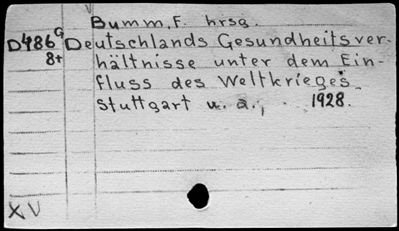 Bumm, F. hrsg.
D486G Deutschlands Gesundheitsver-
8+ hältnisse unter dem Ein-
fluss des Weltkrieges.
Stuttgart u. a., 1928.
XV